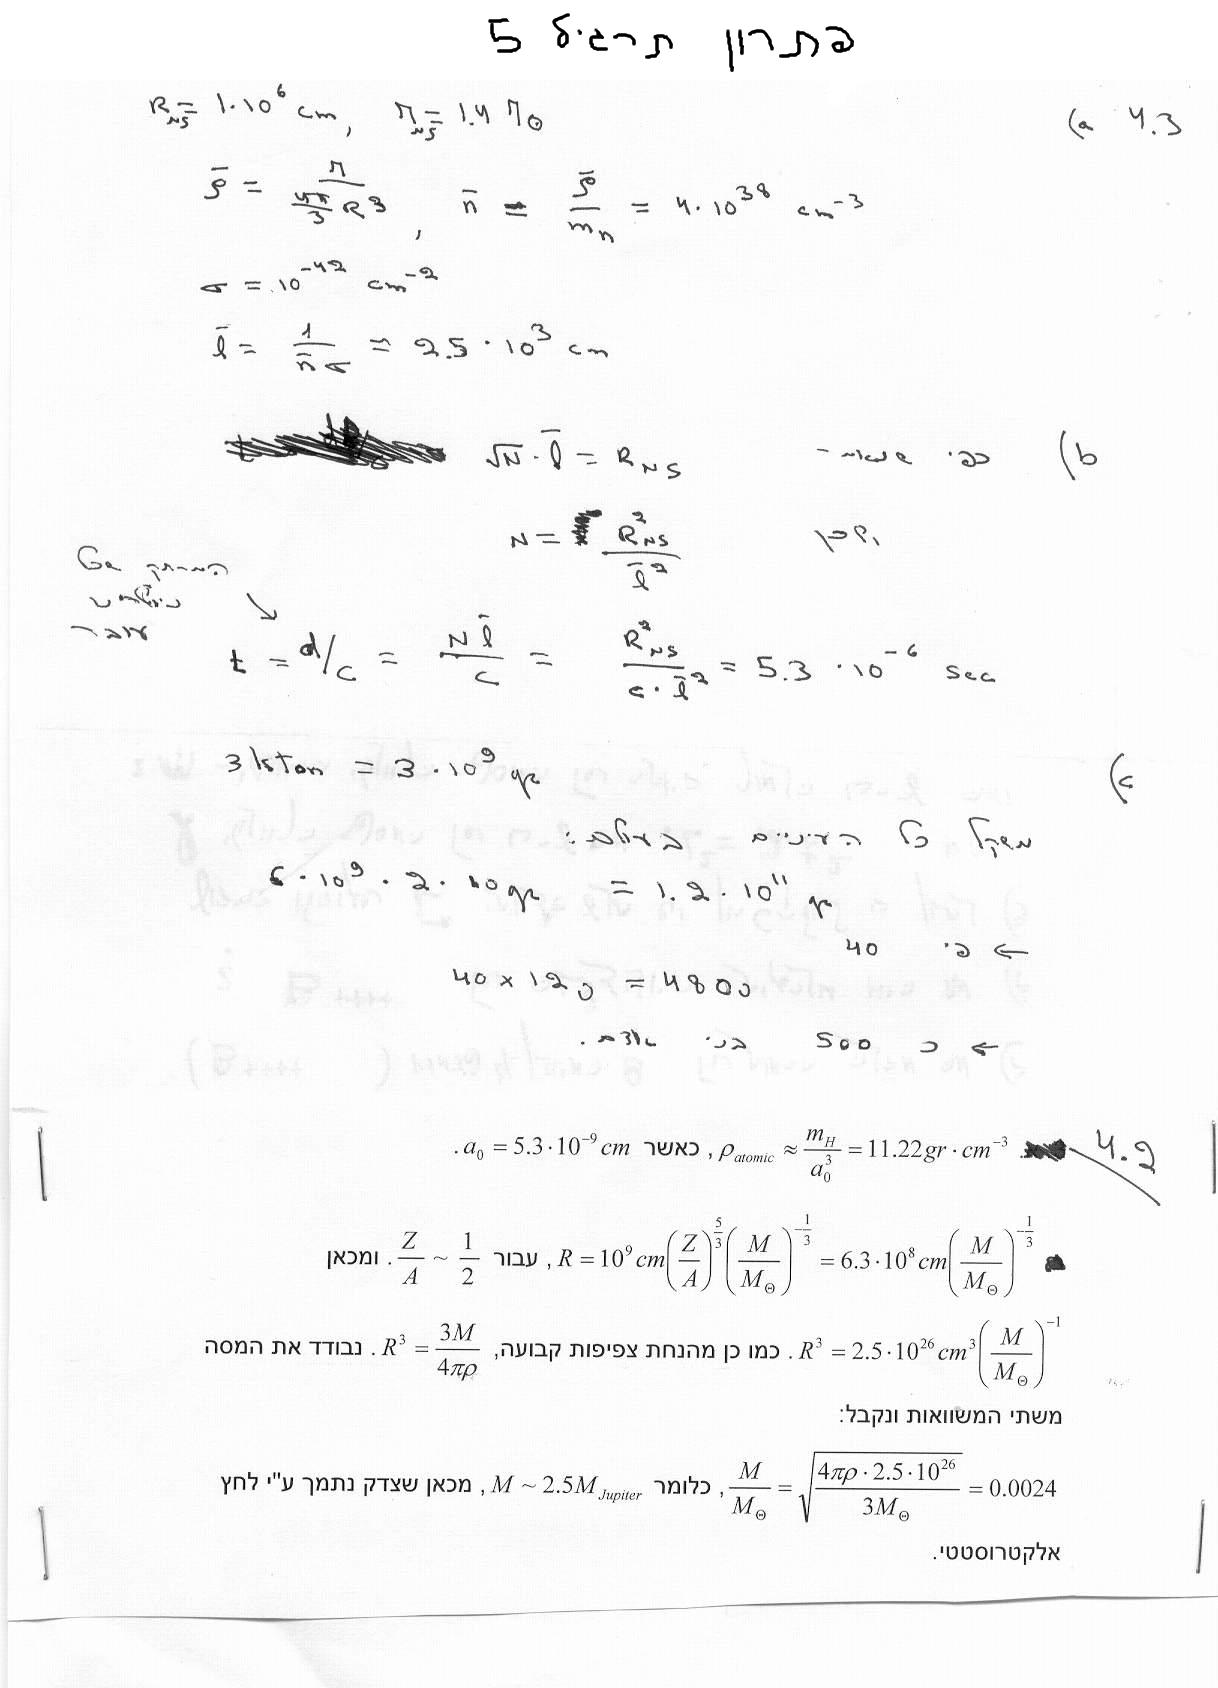 פתרון תרגיל 5
4.3 a) R_NS = 1·10^6 cm, M_NS = 1.4 M_⊙
ρ̄ = M / (4π/3 R^3), n̄ = ρ̄ / m_n = 4·10^38 cm^-3
σ = 10^-42 cm^-2
l̄ = 1 / (n̄ σ) = 2.5·10^3 cm
b) כפי √N · l̄ = R_NS
ולכן N = R_NS^2 / l̄^2
המרחק
עובר
t = d/c = N l̄ / c = R_NS^2 / (c · l̄^2) = 5.3 · 10^-6 sec
c) 3 kton = 3·10^9 gr
משקל כל העיניים בעולם:
6·10^9 · 2 · 10 gr = 1.2·10^11 gr
← פי 40
40 x 120 = 4800
← כ 500 בני אדם.
4.2 ρ_atomic ≈ m_H / a_0^3 = 11.22 gr · cm^-3, כאשר a_0 = 5.3·10^-9 cm.
R = 10^9 cm (Z/A)^(5/3) (M/M_Θ)^(-1/3) = 6.3·10^8 cm (M/M_Θ)^(-1/3), עבור Z/A ~ 1/2. ומכאן
R^3 = 2.5·10^26 cm^3 (M/M_Θ)^-1. כמו כן מהנחת צפיפות קבועה, R^3 = 3M / 4πρ. נבודד את המסה
משתי המשוואות ונקבל:
M/M_Θ = √(4πρ·2.5·10^26 / 3M_Θ) = 0.0024, כלומר M ~ 2.5M_Jupiter, מכאן שצדק נתמך ע"י לחץ
אלקטרוסטטי.